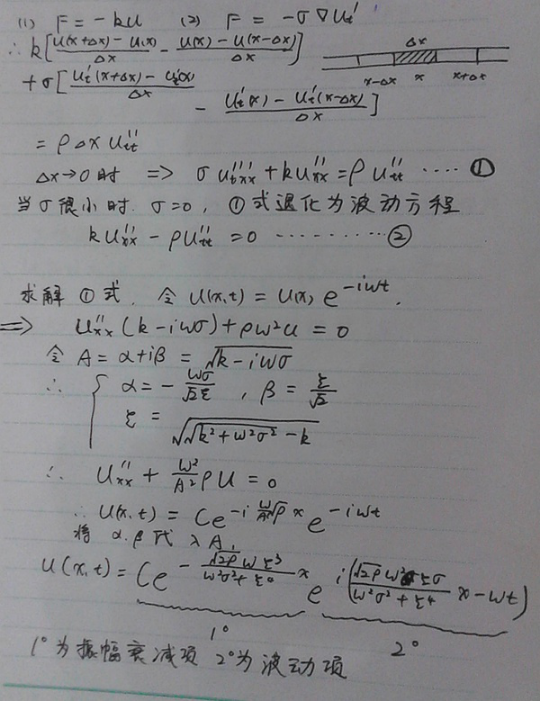 (1) F = -ku (2) F = -σ∇u't
∴ k[(u(x+Δx) - u(x))/Δx - (u(x) - u(x-Δx))/Δx]
Δx
x-Δx x x+Δx
+ σ[(u't(x+Δx) - u't(x))/Δx - (u't(x) - u't(x-Δx))/Δx]
= ρ Δx u''tt
Δx→0时 => σ u'''txx + k u''xx = ρ u''tt ···· ①
当σ很小时. σ=0, ①式退化为波动方程
k u''xx - ρ u''tt = 0 ········· ②
求解①式. 令 u(x,t) = u(x) e^(-iωt).
=> u''xx (k - iωσ) + ρω²u = 0
令 A = α+iβ = √(k - iωσ)
∴ { α = -ωσ/(√2ξ), β = ξ/√2
ξ = √(√(k²+ω²σ²) - k)
∴ u''xx + (ω²/A²)ρu = 0
∴ u(x,t) = Ce^(-i(ω/A)√ρ x) e^(-iωt)
将 α. β 代入A,
u(x,t) = Ce^(-(√(2ρ)ωξ³)/(ω²σ²+ξ⁴) x) e^(i((√(2ρ)ω²ξσ)/(ω²σ²+ξ⁴) x - ωt))
1° 2°
1°为振幅衰减项 2°为波动项